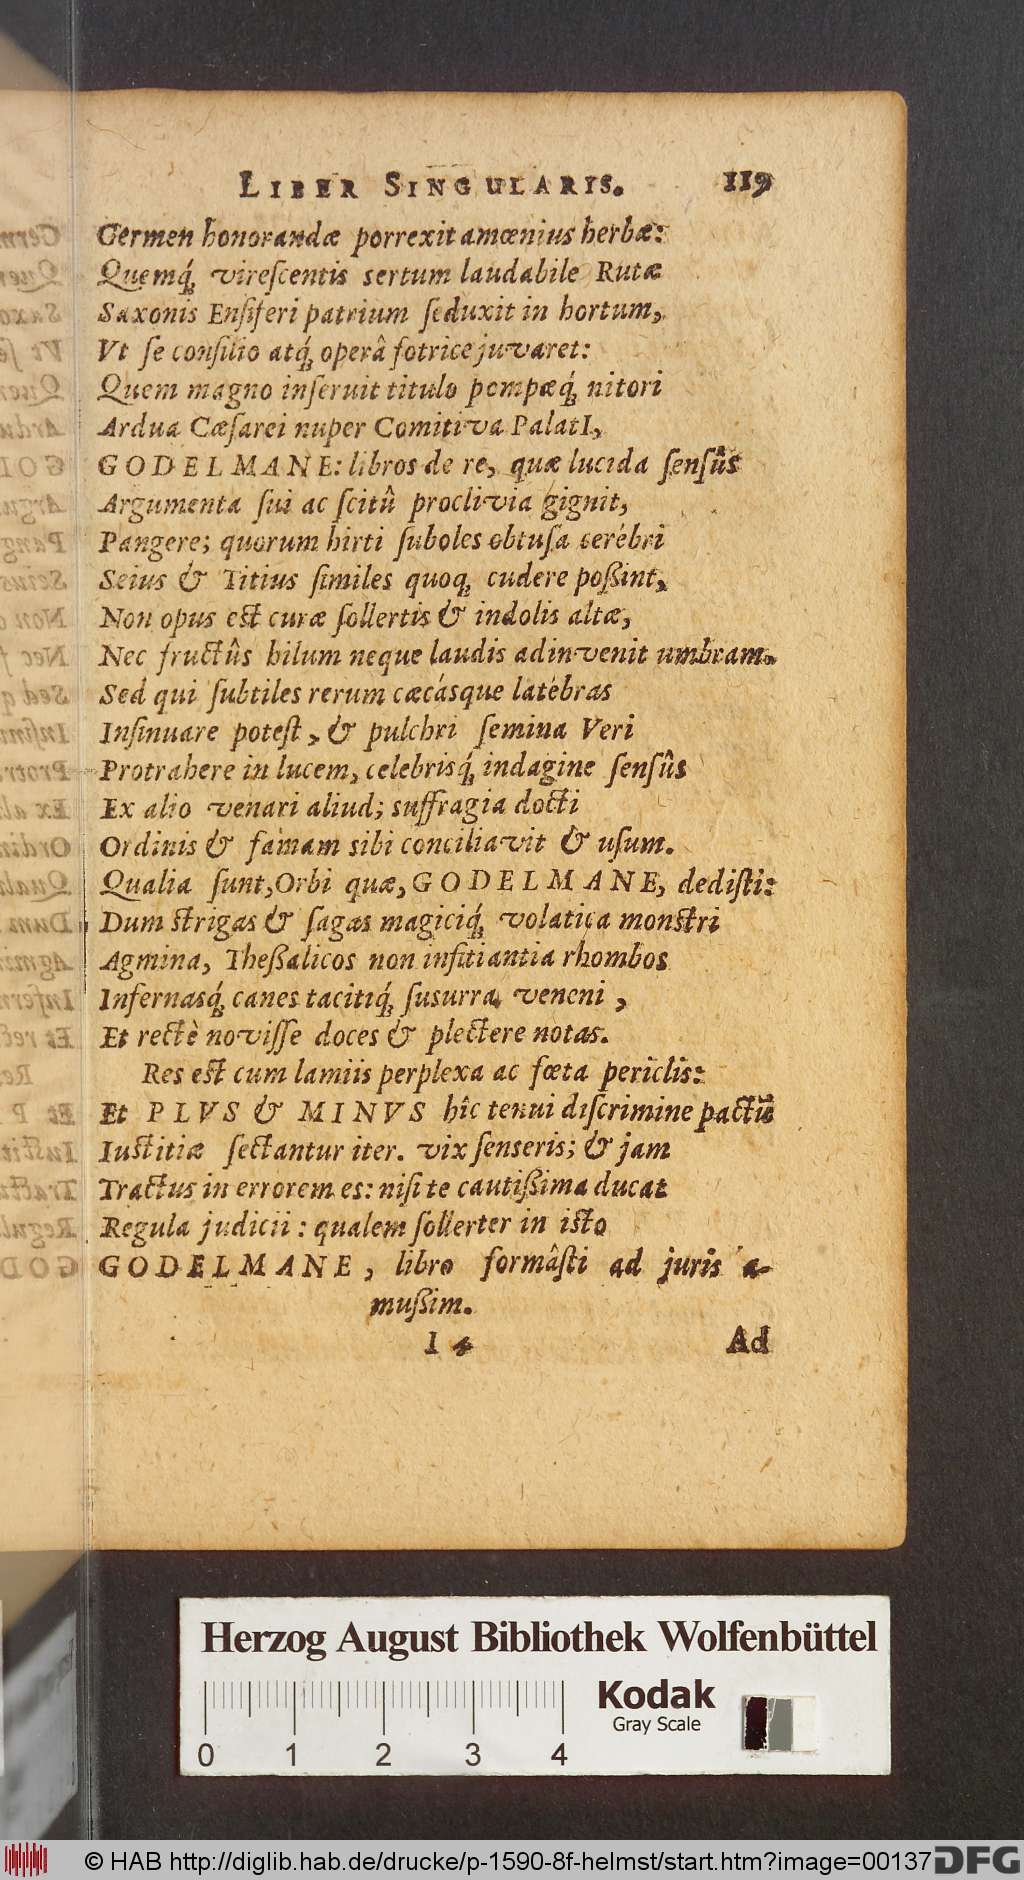 LIBER SINGULARIS. 119
Germen honorandæ porrexit amœnius herbæ:
Quemq́; virescentis sertum laudabile Rutæ
Saxonis Ensiferi patrium seduxit in hortum,
Vt se consilio atq́; operâ fotrice juvaret:
Quem magno inseruit titulo pompæq́; nitori
Ardua Cæsarei nuper Comitiva PalatI,
GODELMANE: libros de re, quæ lucida sensûs
Argumenta sui ac scitû proclivia gignit,
Pangere; quorum hirti suboles obtusa cerébri
Seius & Titius similes quoq; cudere poßint,
Non opus est curæ sollertis & indolis altæ,
Nec fructûs hilum neque laudis adinvenit umbram.
Sed qui subtiles rerum cæcásque latébras
Insinuare potest, & pulchri semina Veri
Protrahere in lucem, celebrisq́; indagine sensûs
Ex alio venari aliud; suffragia docti
Ordinis & famam sibi conciliavit & usum.
Qualia sunt, Orbi quæ, GODELMANE, dedisti:
Dum strigas & sagas magiciq́; volatica monstri
Agmina, Theßalicos non infitiantia rhombos
Infernasq́; canes tacitiq́; susurra veneni,
Et rectè novisse doces & plectere notas.
Res est cum lamiis perplexa ac fœta periclis:
Et PLVS & MINVS hîc tenui discrimine pactũ
Iustitiæ sectantur iter. vix senseris; & jam
Tractus in errorem es: nisi te cautißima ducat
Regula judicii: qualem sollerter in isto
GODELMANE, libro formâsti ad juris a-
mußim.
I 4 Ad
Herzog August Bibliothek Wolfenbüttel
Kodak
Gray Scale
0 1 2 3 4
© HAB http://diglib.hab.de/drucke/p-1590-8f-helmst/start.htm?image=00137
DFG